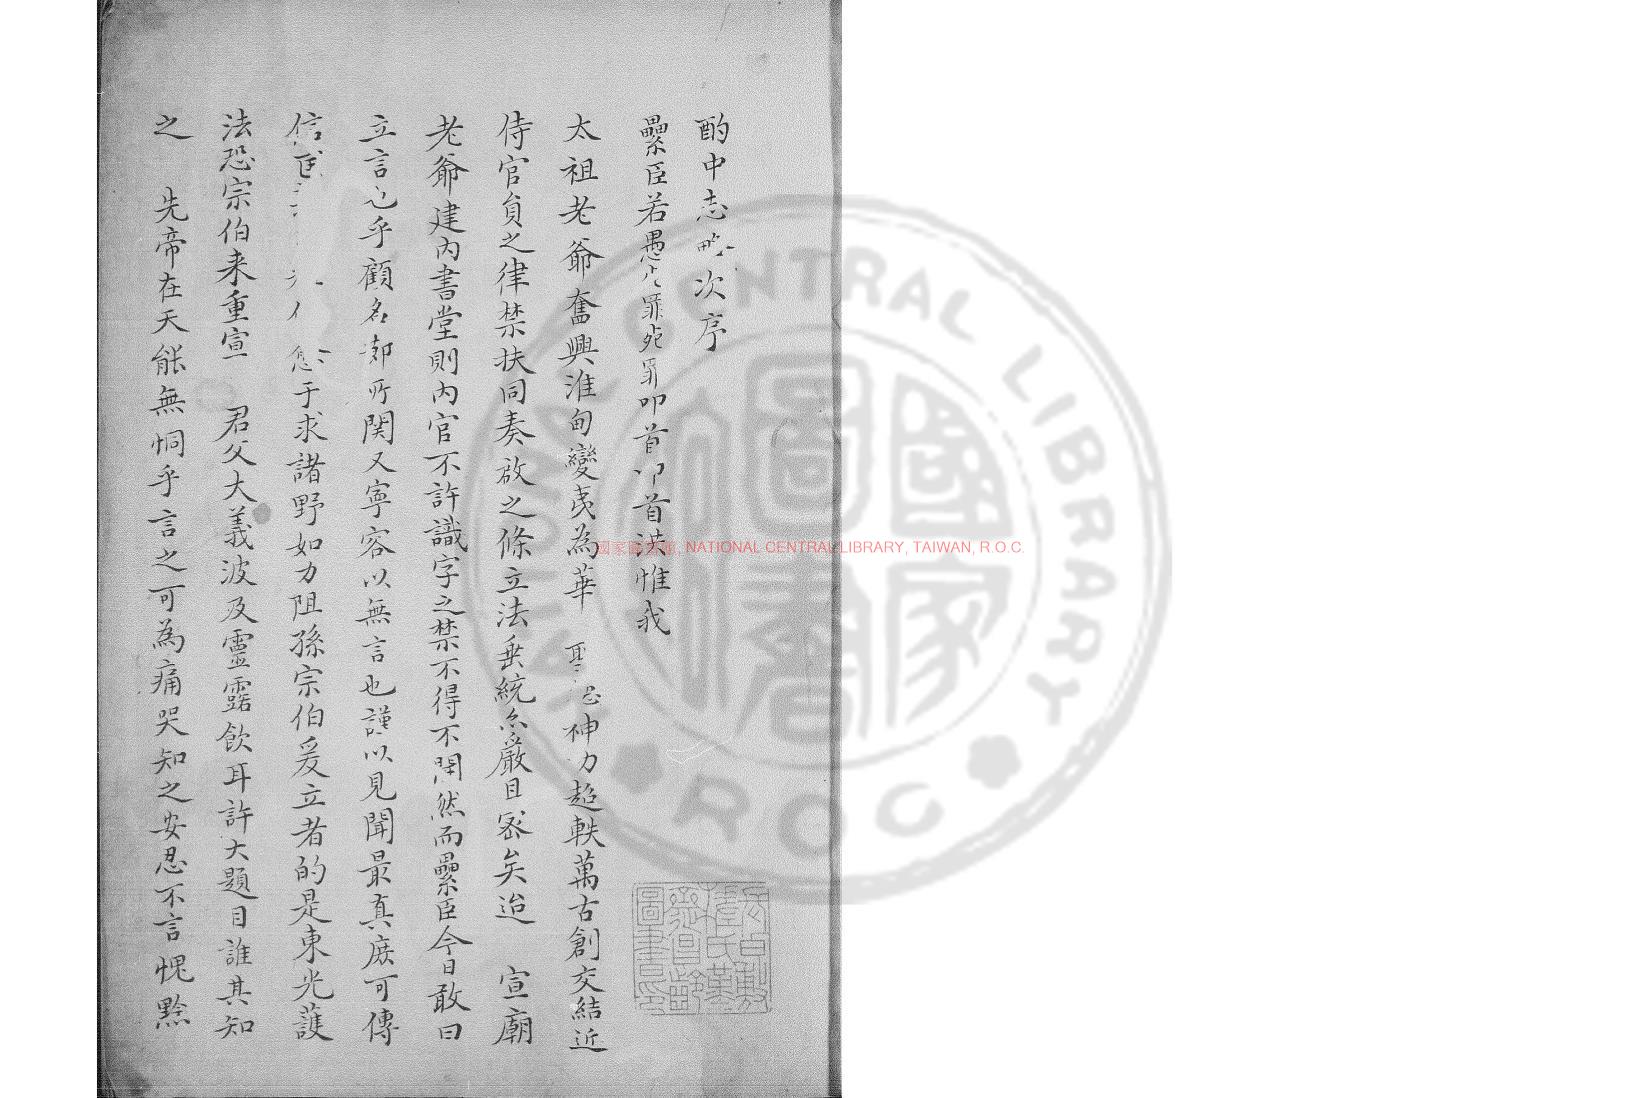 酌中志略次序
纍臣若愚 罪死罪叩首叩首洪惟我
太祖老爺奮興淮甸變夷為華 聖 神力超軼萬古創交結近
侍官員之律禁扶同奏啟之條立法垂統亦嚴且密矣迨 宣廟
老爺建內書堂則內官不許識字之禁不得不開然而纍臣今日敢曰
立言 乎顧名 所関又寧容以無言也謹以見聞最真庶可傳
信 于求諸野如力阻孫宗伯爰立者的是東光護
法恐宗伯来重宣 君父大義波及靈露飲耳許大題目誰其知
之 先帝在天能無恫乎言之可為痛哭知之安忍不言愧黙
國家圖書館, NATIONAL CENTRAL LIBRARY, TAIWAN, R.O.C.
NATIONAL CENTRAL LIBRARY
ROC
國家圖書